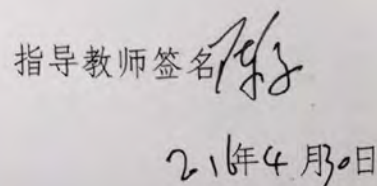 指导教师签名
2016年4月30日